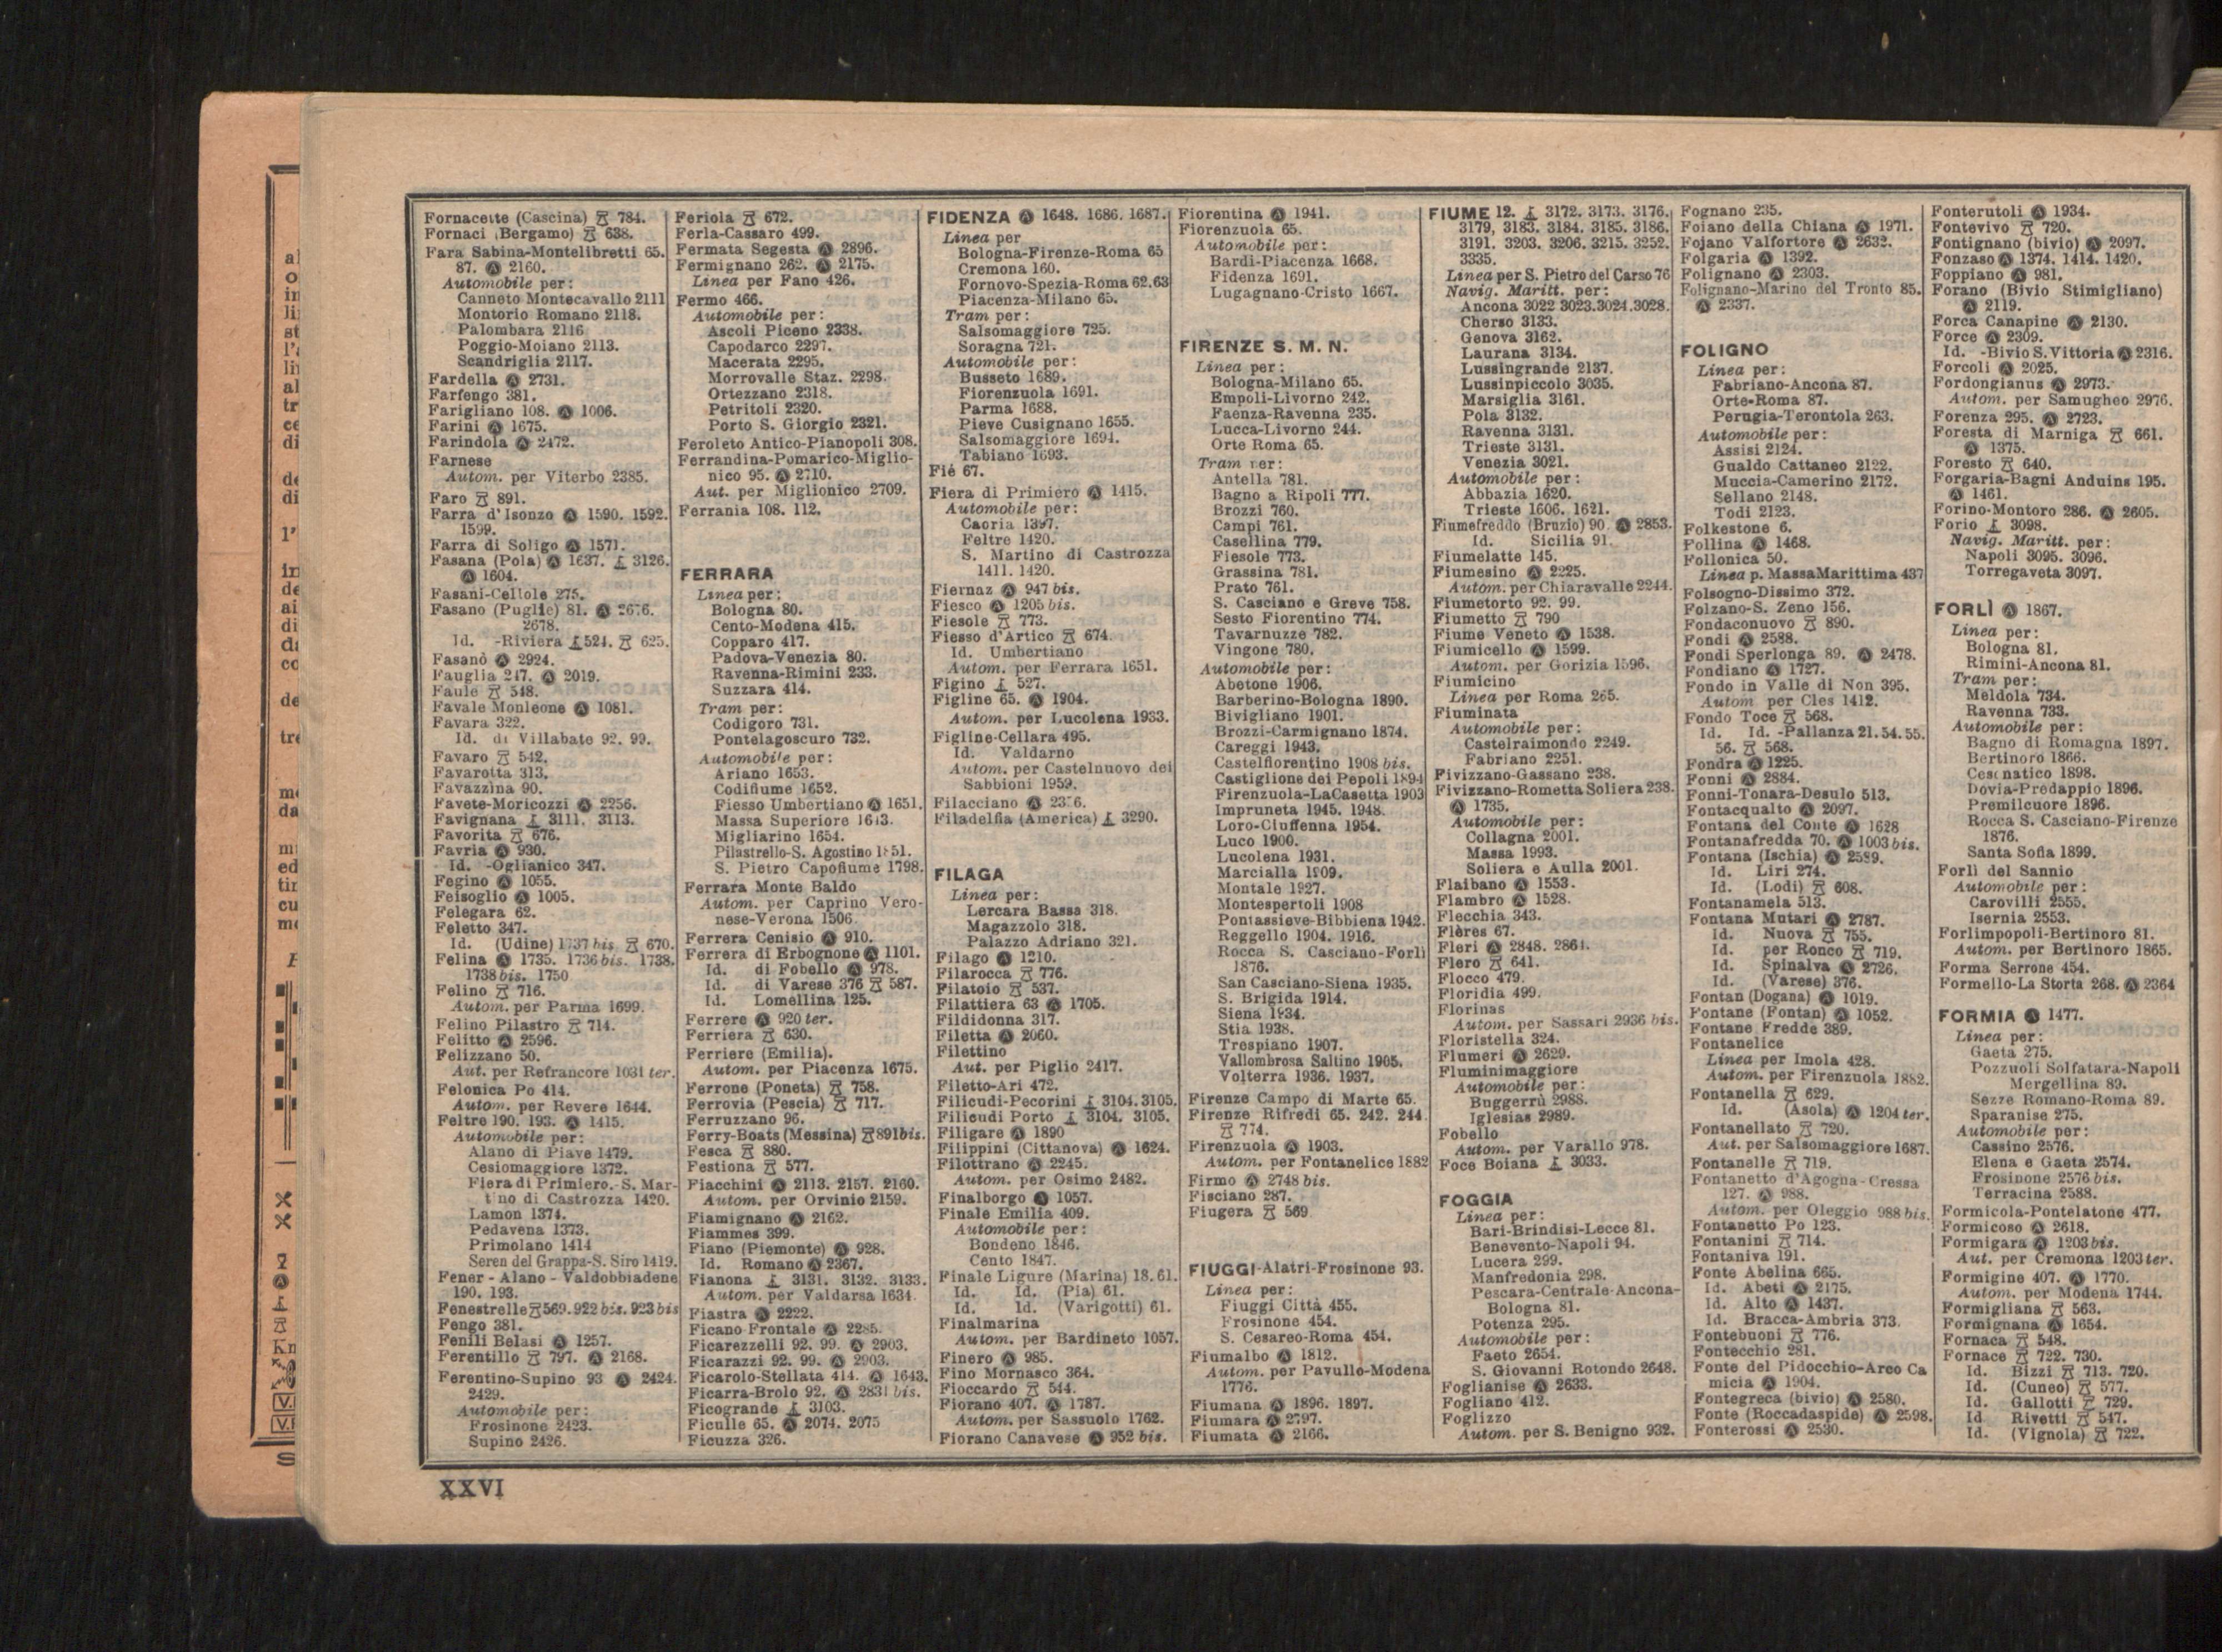 Fornacette (Cascina) 784.
Fornaci (Bergamo) 638.
Fara Sabina-Montelibretti 65.
87. Ⓐ 2160.
Automobile per:
Canneto Montecavallo 2111
Montorio Romano 2118.
Palombara 2116
Poggio-Moiano 2113.
Scandriglia 2117.
Fardella Ⓐ 2731.
Farfengo 381.
Farigliano 108. Ⓐ 1006.
Farini Ⓐ 1675.
Farindola Ⓐ 2472.
Farnese
Autom. per Viterbo 2385.
Faro 891.
Farra d'Isonzo Ⓐ 1590. 1592.
1599.
Farra di Soligo Ⓐ 1571.
Fasana (Pola) Ⓐ 1637. 3126.
Ⓐ 1604.
Fasani-Cellole 275.
Fasano (Puglie) 81. Ⓐ 2676.
2678.
Id. -Riviera 524. 625.
Fasanò Ⓐ 2924.
Fauglia 247. Ⓐ 2019.
Faule 548.
Favale Monleone Ⓐ 1081.
Favara 322.
Id. di Villabate 92. 99.
Favaro 542.
Favarotta 313.
Favazzina 90.
Favete-Moricozzi Ⓐ 2256.
Favignana 3111. 3113.
Favorita 676.
Favria Ⓐ 930.
Id. -Oglianico 347.
Fegino Ⓐ 1055.
Feisoglio Ⓐ 1005.
Felegara 62.
Feletto 347.
Id. (Udine) 1737 bis 670.
Felina Ⓐ 1735. 1736 bis. 1738.
1738 bis. 1750
Felino 716.
Autom. per Parma 1699.
Felino Pilastro 714.
Felitto Ⓐ 2596.
Felizzano 50.
Aut. per Refrancore 1031 ter.
Felonica Po 414.
Autom. per Revere 1644.
Feltre 190. 193. Ⓐ 1415.
Automobile per:
Alano di Piave 1479.
Cesiomaggiore 1372.
Fiera di Primiero.-S. Mar-
tino di Castrozza 1420.
Lamon 1374.
Pedavena 1373.
Primolano 1414
Seren del Grappa-S. Siro 1419.
Fener - Alano - Valdobbiadene
190. 193.
Fenestrelle 569. 922 bis. 923 bis
Fengo 381.
Fenili Belasi Ⓐ 1257.
Ferentillo 797. Ⓐ 2168.
Ferentino-Supino 93 Ⓐ 2424.
2429.
Automobile per:
Frosinone 2423.
Supino 2426.
Feriola 672.
Ferla-Cassaro 499.
Fermata Segesta Ⓐ 2896.
Fermignano 262. Ⓐ 2175.
Linea per Fano 426.
Fermo 466.
Automobile per:
Ascoli Piceno 2338.
Capodarco 2297.
Macerata 2295.
Morrovalle Staz. 2298.
Ortezzano 2318.
Petritoli 2320.
Porto S. Giorgio 2321.
Feroleto Antico-Pianopoli 308.
Ferrandina-Pomarico-Miglio-
nico 95. Ⓐ 2710.
Aut. per Miglionico 2709.
Ferrania 108. 112.
FERRARA
Linea per:
Bologna 80.
Cento-Modena 415.
Copparo 417.
Padova-Venezia 80.
Ravenna-Rimini 233.
Suzzara 414.
Tram per:
Codigoro 731.
Pontelagoscuro 732.
Automobile per:
Ariano 1653.
Codifiume 1652.
Fiesso Umbertiano Ⓐ 1651.
Massa Superiore 1643.
Migliarino 1654.
Pilastrello-S. Agostino 1851.
S. Pietro Capofiume 1798.
Ferrara Monte Baldo
Autom. per Caprino Vero-
nese-Verona 1506
Ferrera Cenisio Ⓐ 910.
Ferrera di Erbognone Ⓐ 1101.
Id. di Fobello Ⓐ 978.
Id. di Varese 376 587.
Id. Lomellina 125.
Ferrere Ⓐ 920 ter.
Ferriera 630.
Ferriere (Emilia).
Autom. per Piacenza 1675.
Ferrone (Poneta) 758.
Ferrovia (Pescia) 717.
Ferruzzano 96.
Ferry-Boats (Messina) 891bis.
Fesca 880.
Festiona 577.
Fiacchini Ⓐ 2113. 2157. 2160.
Autom. per Orvinio 2159.
Fiamignano Ⓐ 2162.
Fiammes 399.
Fiano (Piemonte) Ⓐ 928.
Id. Romano Ⓐ 2367.
Fianona 3131. 3132. 3133.
Autom. per Valdarsa 1634.
Fiastra Ⓐ 2222.
Ficano Frontale Ⓐ 2285.
Ficarezzelli 92. 99. Ⓐ 2903.
Ficarazzi 92. 99. Ⓐ 2903.
Ficarolo-Stellata 414. Ⓐ 1643.
Ficarra-Brolo 92. Ⓐ 2831 bis.
Ficogrande 3103.
Ficulle 65. Ⓐ 2074. 2075
Ficuzza 326.
FIDENZA Ⓐ 1648. 1686. 1687.
Linea per
Bologna-Firenze-Roma 65
Cremona 160.
Fornovo-Spezia-Roma 62.63
Piacenza-Milano 65.
Tram per:
Salsomaggiore 725.
Soragna 721.
Automobile per:
Busseto 1689.
Fiorenzuola 1691.
Parma 1688.
Pieve Cusignano 1655.
Salsomaggiore 1694.
Tabiano 1693.
Fié 67.
Fiera di Primiero Ⓐ 1415.
Automobile per:
Caoria 1397.
Feltre 1420.
S. Martino di Castrozza
1411. 1420.
Fiernaz Ⓐ 947 bis.
Fiesco Ⓐ 1205 bis.
Fiesole 773.
Fiesso d'Artico 674.
Id. Umbertiano
Autom. per Ferrara 1651.
Figino 527.
Figline 65. Ⓐ 1904.
Autom. per Lucolena 1933.
Figline-Cellara 495.
Id. Valdarno
Autom. per Castelnuovo dei
Sabbioni 1959.
Filacciano Ⓐ 2376.
Filadelfia (America) 3290.
FILAGA
Linea per:
Lercara Bassa 318.
Magazzolo 318.
Palazzo Adriano 321.
Filago Ⓐ 1210.
Filarocca 776.
Filatoio 537.
Filattiera 63 Ⓐ 1705.
Fildidonna 317.
Filetta Ⓐ 2060.
Filettino
Aut. per Piglio 2417.
Filetto-Ari 472.
Filicudi-Pecorini 3104. 3105.
Filicudi Porto 3104. 3105.
Filigare Ⓐ 1890
Filippini (Cittanova) Ⓐ 1624.
Filottrano Ⓐ 2245.
Autom. per Osimo 2482.
Finalborgo Ⓐ 1057.
Finale Emilia 409.
Automobile per:
Bondeno 1846.
Cento 1847.
Finale Ligure (Marina) 18.61.
Id. Id. (Pia) 61.
Id. Id. (Varigotti) 61.
Finalmarina
Autom. per Bardineto 1057.
Finero Ⓐ 985.
Fino Mornasco 364.
Fioccardo 544.
Fiorano 407. Ⓐ 1787.
Autom. per Sassuolo 1762.
Fiorano Canavese Ⓐ 952 bis.
Fiorentina Ⓐ 1941.
Fiorenzuola 65.
Automobile per:
Bardi-Piacenza 1668.
Fidenza 1691.
Lugagnano-Cristo 1667.
FIRENZE S. M. N.
Linea per:
Bologna-Milano 65.
Empoli-Livorno 242.
Faenza-Ravenna 235.
Lucca-Livorno 244.
Orte Roma 65.
Tram per:
Antella 781.
Bagno a Ripoli 777.
Brozzi 760.
Campi 761.
Casellina 779.
Fiesole 773.
Grassina 781.
Prato 761.
S. Casciano e Greve 758.
Sesto Fiorentino 774.
Tavarnuzze 782.
Vingone 780.
Automobile per:
Abetone 1906.
Barberino-Bologna 1890.
Bivigliano 1901.
Brozzi-Carmignano 1874.
Careggi 1943.
Castelfiorentino 1908 bis.
Castiglione dei Pepoli 1894
Firenzuola-LaCasetta 1903
Impruneta 1945. 1948.
Loro-Ciuffenna 1954.
Luco 1900.
Lucolena 1931.
Marcialla 1909.
Montale 1927.
Montespertoli 1908
Pontassieve-Bibbiena 1942.
Reggello 1904. 1916.
Rocca S. Casciano-Forlì
1876.
San Casciano-Siena 1935.
S. Brigida 1914.
Siena 1934.
Stia 1938.
Trespiano 1907.
Vallombrosa Saltino 1905.
Volterra 1936. 1937.
Firenze Campo di Marte 65.
Firenze Rifredi 65. 242. 244
774.
Firenzuola Ⓐ 1903.
Autom. per Fontanelice 1882
Firmo Ⓐ 2748 bis.
Fisciano 287.
Fiugera 569
FIUGGI-Alatri-Frosinone 93.
Linea per:
Fiuggi Città 455.
Frosinone 454.
S. Cesareo-Roma 454.
Fiumalbo Ⓐ 1812.
Autom. per Pavullo-Modena
1776.
Fiumana Ⓐ 1896. 1897.
Fiumara Ⓐ 2797.
Fiumata Ⓐ 2166.
FIUME 12. 3172. 3173. 3176.
3179, 3183. 3184. 3185. 3186.
3191. 3203. 3206. 3215. 3252.
3335.
Linea per S. Pietro del Carso 76
Navig. Maritt. per:
Ancona 3022 3023.3024.3028.
Cherso 3133.
Genova 3162.
Laurana 3134.
Lussingrande 2137.
Lussinpiccolo 3035.
Marsiglia 3161.
Pola 3132.
Ravenna 3131.
Trieste 3131.
Venezia 3021.
Automobile per:
Abbazia 1620.
Trieste 1606. 1621.
Fiumefreddo (Bruzio) 90. Ⓐ 2853.
Id. Sicilia 91.
Fiumelatte 145.
Fiumesino Ⓐ 2225.
Autom. per Chiaravalle 2244.
Fiumetorto 92. 99.
Fiumetto 790
Fiume Veneto Ⓐ 1538.
Fiumicello Ⓐ 1599.
Autom. per Gorizia 1596.
Fiumicino
Linea per Roma 265.
Fiuminata
Automobile per:
Castelraimondo 2249.
Fabriano 2251.
Fivizzano-Gassano 238.
Fivizzano-Rometta Soliera 238.
Ⓐ 1735.
Automobile per:
Collagna 2001.
Massa 1993.
Soliera e Aulla 2001.
Flaibano Ⓐ 1553.
Flambro Ⓐ 1528.
Flecchia 343.
Flères 67.
Fleri Ⓐ 2848. 2861.
Flero 641.
Flocco 479.
Floridia 499.
Florinas
Autom. per Sassari 2936 bis.
Floristella 324.
Flumeri Ⓐ 2629.
Fluminimaggiore
Automobile per:
Buggerrù 2988.
Iglesias 2989.
Fobello
Autom. per Varallo 978.
Foce Boiana 3033.
FOGGIA
Linea per:
Bari-Brindisi-Lecce 81.
Benevento-Napoli 94.
Lucera 299.
Manfredonia 298.
Pescara-Centrale-Ancona-
Bologna 81.
Potenza 295.
Automobile per:
Faeto 2654.
S. Giovanni Rotondo 2648.
Foglianise Ⓐ 2633.
Fogliano 412.
Foglizzo
Autom. per S. Benigno 932.
Fognano 235.
Foiano della Chiana Ⓐ 1971.
Fojano Valfortore Ⓐ 2632.
Folgaria Ⓐ 1392.
Folignano Ⓐ 2303.
Folignano-Marino del Tronto 85.
Ⓐ 2337.
FOLIGNO
Linea per:
Fabriano-Ancona 87.
Orte-Roma 87.
Perugia-Terontola 263.
Automobile per:
Assisi 2124.
Gualdo Cattaneo 2122.
Muccia-Camerino 2172.
Sellano 2148.
Todi 2123.
Folkestone 6.
Follina Ⓐ 1468.
Follonica 50.
Linea p. MassaMarittima 437
Folsogno-Dissimo 372.
Folzano-S. Zeno 156.
Fondaconuovo 890.
Fondi Ⓐ 2588.
Fondi Sperlonga 89. Ⓐ 2478.
Fondiano Ⓐ 1727.
Fondo in Valle di Non 395.
Autom per Cles 1412.
Fondo Toce 568.
Id. Id. -Pallanza 21. 54. 55.
56. 568.
Fondra Ⓐ 1225.
Fonni Ⓐ 2884.
Fonni-Tonara-Desulo 513.
Fontacqualto Ⓐ 2097.
Fontana del Conte Ⓐ 1628
Fontanafredda 70. Ⓐ 1003 bis.
Fontana (Ischia) Ⓐ 2589.
Id. Liri 274.
Id. (Lodi) 608.
Fontanamela 513.
Fontana Mutari Ⓐ 2787.
Id. Nuova 755.
Id. per Ronco 719.
Id. Spinalva Ⓐ 2726.
Id. (Varese) 376.
Fontan (Dogana) Ⓐ 1019.
Fontane (Fontan) Ⓐ 1052.
Fontane Fredde 389.
Fontanelice
Linea per Imola 428.
Autom. per Firenzuola 1882.
Fontanella 629.
Id. (Asola) Ⓐ 1204 ter.
Fontanellato 720.
Aut. per Salsomaggiore 1687.
Fontanelle 719.
Fontanetto d'Agogna-Cressa
127. Ⓐ 988.
Autom. per Oleggio 988 bis.
Fontanetto Po 123.
Fontanini 714.
Fontaniva 191.
Fonte Abelina 665.
Id. Abeti Ⓐ 2175.
Id. Alto Ⓐ 1437.
Id. Bracca-Ambria 373.
Fontebuoni 776.
Fontecchio 281.
Fonte del Pidocchio-Arco Ca
micia Ⓐ 1904.
Fontegreca (bivio) Ⓐ 2580.
Fonte (Roccadaspide) Ⓐ 2598.
Fonterossi Ⓐ 2530.
Fonterutoli Ⓐ 1934.
Fontevivo 720.
Fontignano (bivio) Ⓐ 2097.
Fonzaso Ⓐ 1374. 1414. 1420.
Foppiano Ⓐ 981.
Forano (Bivio Stimigliano)
Ⓐ 2119.
Forca Canapine Ⓐ 2130.
Force Ⓐ 2309.
Id. -Bivio S. Vittoria Ⓐ 2316.
Forcoli Ⓐ 2025.
Fordongianus Ⓐ 2973.
Autom. per Samugheo 2976.
Forenza 295. Ⓐ 2723.
Foresta di Marniga 661.
Ⓐ 1375.
Foresto 640.
Forgaria-Bagni Anduins 195.
Ⓐ 1461.
Forino-Montoro 286. Ⓐ 2605.
Forio 3098.
Navig. Maritt. per:
Napoli 3095. 3096.
Torregaveta 3097.
FORLÌ Ⓐ 1867.
Linea per:
Bologna 81.
Rimini-Ancona 81.
Tram per:
Meldola 734.
Ravenna 733.
Automobile per:
Bagno di Romagna 1897.
Bertinoro 1866.
Cesenatico 1898.
Dovia-Predappio 1896.
Premilcuore 1896.
Rocca S. Casciano-Firenze
1876.
Santa Sofia 1899.
Forlì del Sannio
Automobile per:
Carovilli 2555.
Isernia 2553.
Forlimpopoli-Bertinoro 81.
Autom. per Bertinoro 1865.
Forma Serrone 454.
Formello-La Storta 268. Ⓐ 2364
FORMIA Ⓐ 1477.
Linea per:
Gaeta 275.
Pozzuoli Solfatara-Napoli
Mergellina 89.
Sezze Romano-Roma 89.
Sparanise 275.
Automobile per:
Cassino 2576.
Elena e Gaeta 2574.
Frosinone 2576 bis.
Terracina 2588.
Formicola-Pontelatone 477.
Formicoso Ⓐ 2618.
Formigara Ⓐ 1203 bis.
Aut. per Cremona 1203 ter.
Formigine 407. Ⓐ 1770.
Autom. per Modena 1744.
Formigliana 563.
Formignana Ⓐ 1654.
Fornaca 548.
Fornace 722. 730.
Id. Bizzi 713. 720.
Id. (Cuneo) 577.
Id. Gallotti 729.
Id. Rivetti 547.
Id. (Vignola) 722.
XXVI